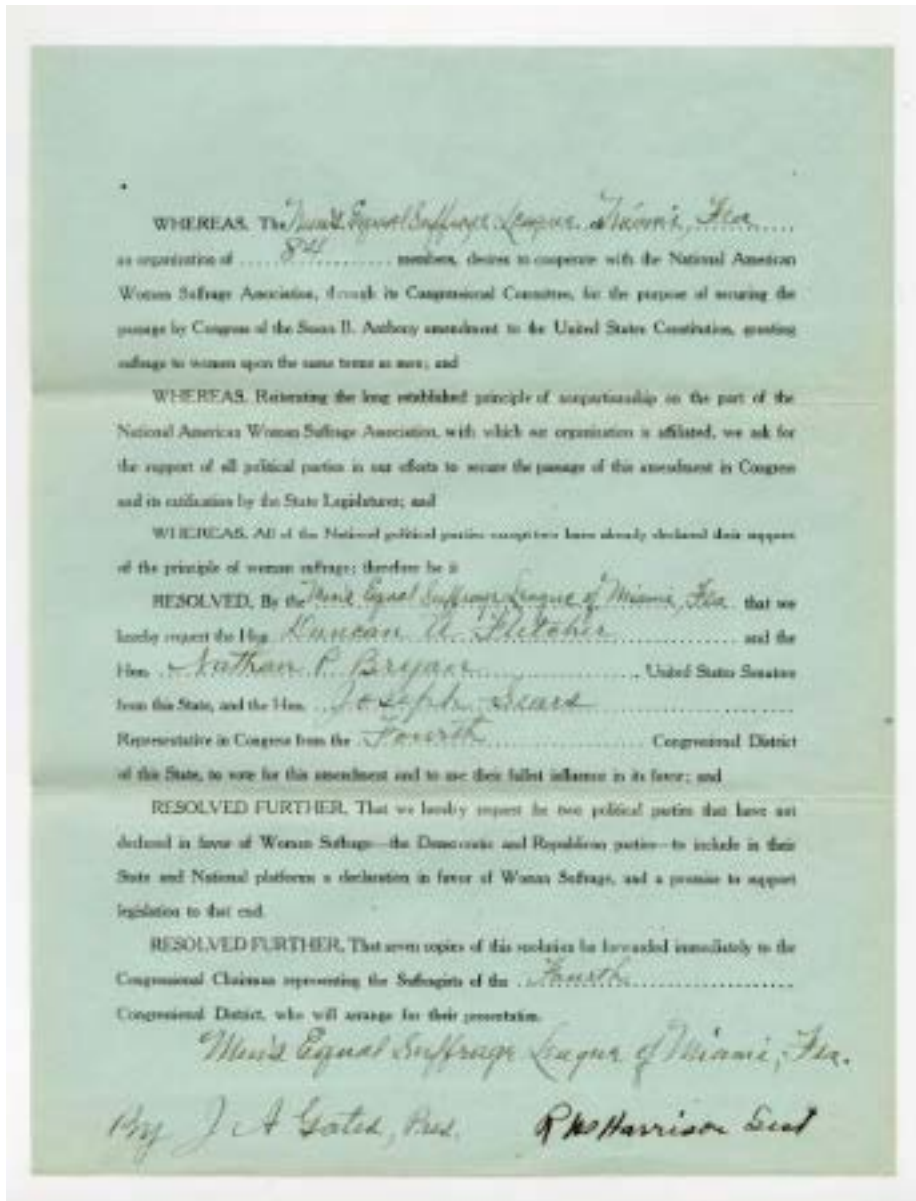 WHEREAS, The Men's Equal Suffrage League of Miami, Fla
an organization of 84 members, desires to cooperate with the National American
Woman Suffrage Association, through its Congressional Committee, for the purpose of securing the
passage by Congress of the Susan B. Anthony amendment to the United States Constitution, granting
suffrage to women upon the same terms as men; and
WHEREAS, Reiterating the long established principle of nonpartisanship on the part of the
National American Woman Suffrage Association, with which our organization is affiliated, we ask for
the support of all political parties in our efforts to secure the passage of this amendment in Congress
and its ratification by the State Legislatures; and
WHEREAS, All of the National political parties except two have already declared their support
of the principle of woman suffrage; therefore be it
RESOLVED, By the Men's Equal Suffrage League of Miami, Fla that we
hereby request the Hon. Duncan U. Fletcher and the
Hon. Nathan P. Bryan, United States Senators
from this State, and the Hon. Joseph Sears
Representative in Congress from the Fourth Congressional District
of this State, to vote for this amendment and to use their fullest influence in its favor; and
RESOLVED FURTHER, That we hereby request the two political parties that have not
declared in favor of Woman Suffrage—the Democratic and Republican parties—to include in their
State and National platforms a declaration in favor of Woman Suffrage, and a promise to support
legislation to that end.
RESOLVED FURTHER, That seven copies of this resolution be forwarded immediately to the
Congressional Chairman representing the Suffragists of the Fourth
Congressional District, who will arrange for their presentation.
Men's Equal Suffrage League of Miami, Fla.
By J A Gates, Pres. Harrison